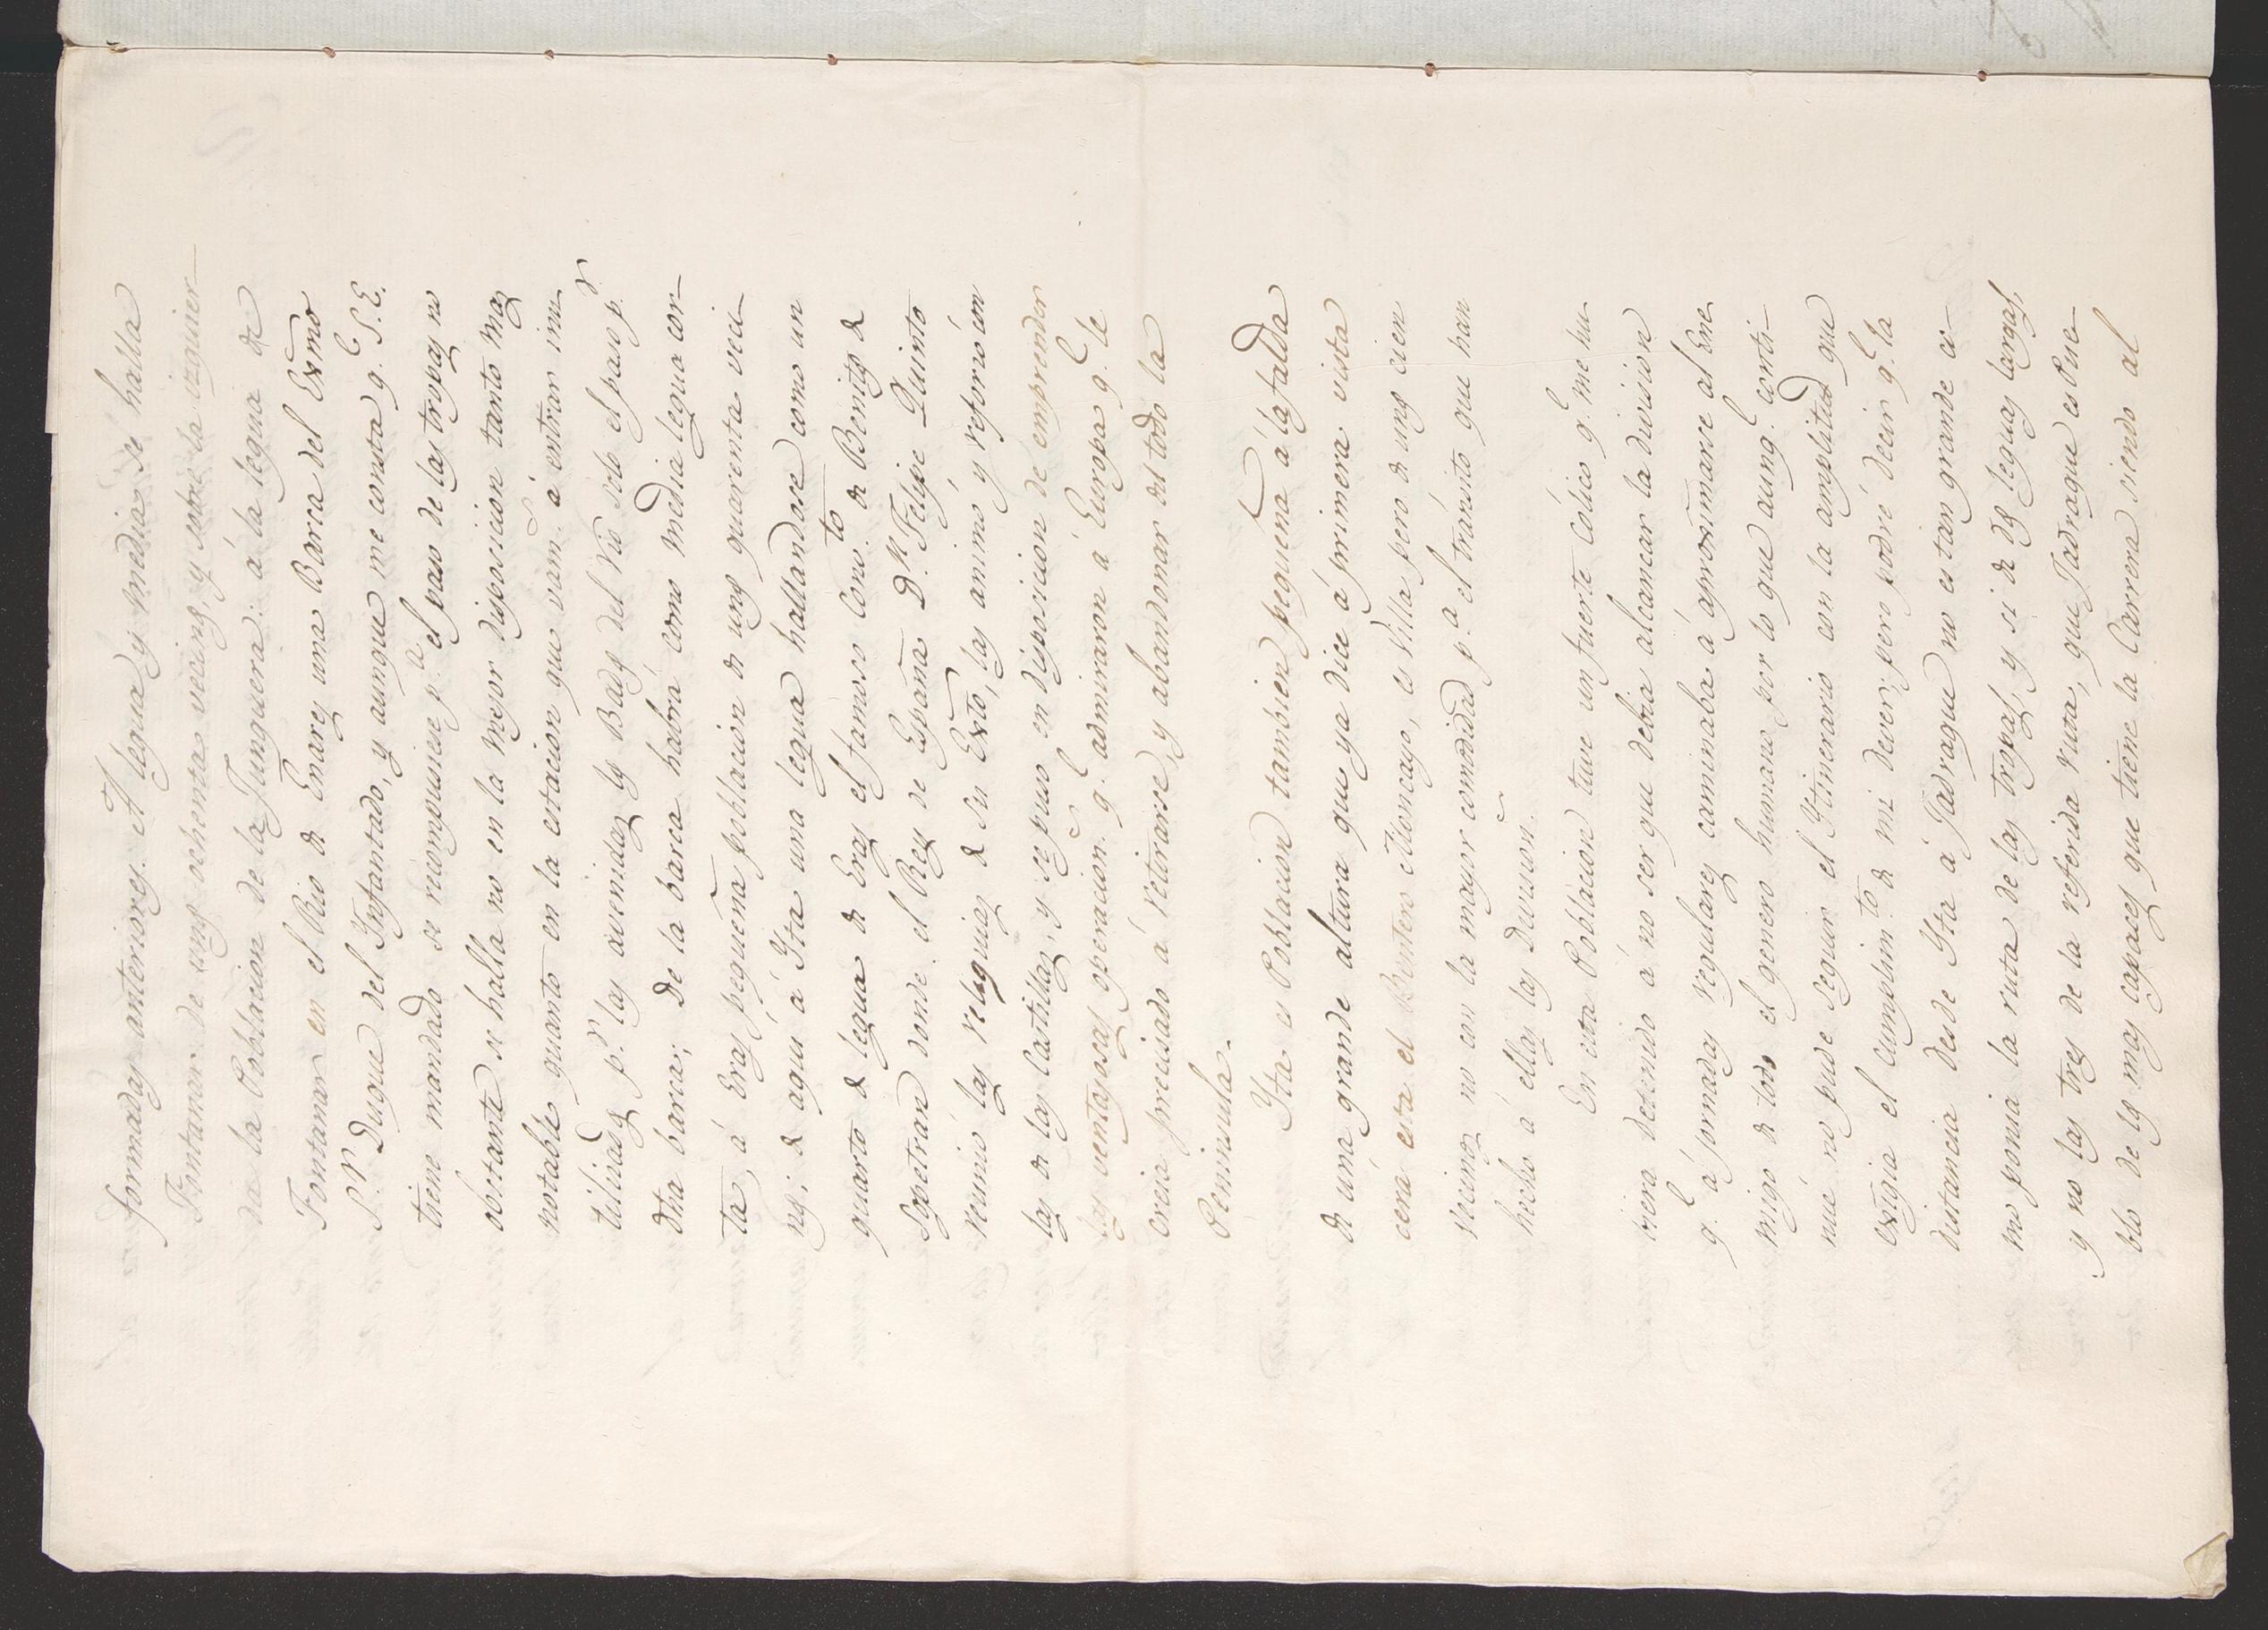 formadas anteriores. A legua y media se halla
Fontanar de unos ochenta vecinos, y sobre la izquier-
da la Poblacion de la Junquera: á la legua de
Fontanar en el Rio de Enares una Barca del Exmo
S.r Duque del Ynfantado, y aunque me consta q.e S.E.
tiene mandado se recompusiese p.a el paso de las tropas no
obstante se halla no en la mejor disposicion tanto mas
notable quanto en la estacion que vam.s á entrar inu-
tilisados p.r las avenidas los Bados del rio solo el paso p.r
dha barca; De la barca habrá como media legua cor-
ta, á Eras pequeña poblacion de unos quarenta veci-
nos; de aqui á Yta una legua hallandose como un
quarto de legua de Eras el famoso Conv.to de Benitos de
Sopetran donde el Rey de España D.n Felipe Quinto
reunio las reliquias de su Exto, las animó y reforzó con
las de las Castillas, y se puso en disposicion de emprender
las ventajosas operacion.s q.e admiraron á Europa q.e le
creia precisado á retirarse, y abandonar del todo la
Peninsula.
Yta es Poblacion tambien pequeña á la falda
de úna grande altura que ya dice á primera vista
cera esta el Bentero Moncayo, es Villa pero de unos cien
vecinos no con la mayor comodidad p.a el tránsito que han
hecho á ellas las Division.s
En esta Poblacion tuve un fuerte Cólico q.e me hu-
viera detenido á no ser que debia alcanzar la division
q.e á jornadas regulares caminaba á aproximarse al Ene-
migo de todo el genero humano por lo que aunq.e conti-
nué no pude seguir el Ytinerario con la amplitud que
exigia el cumplim.to de mi dever; pero podré decir q.e la
distancia desde Yta á Jadraque no es tan grande co-
mo ponia la ruta de las tropas, y si de dos leguas largas,
y no las tres de la referida ruta, que Jadraque es Pue-
blo de los mas capaces que tiene la Carrera siendo al